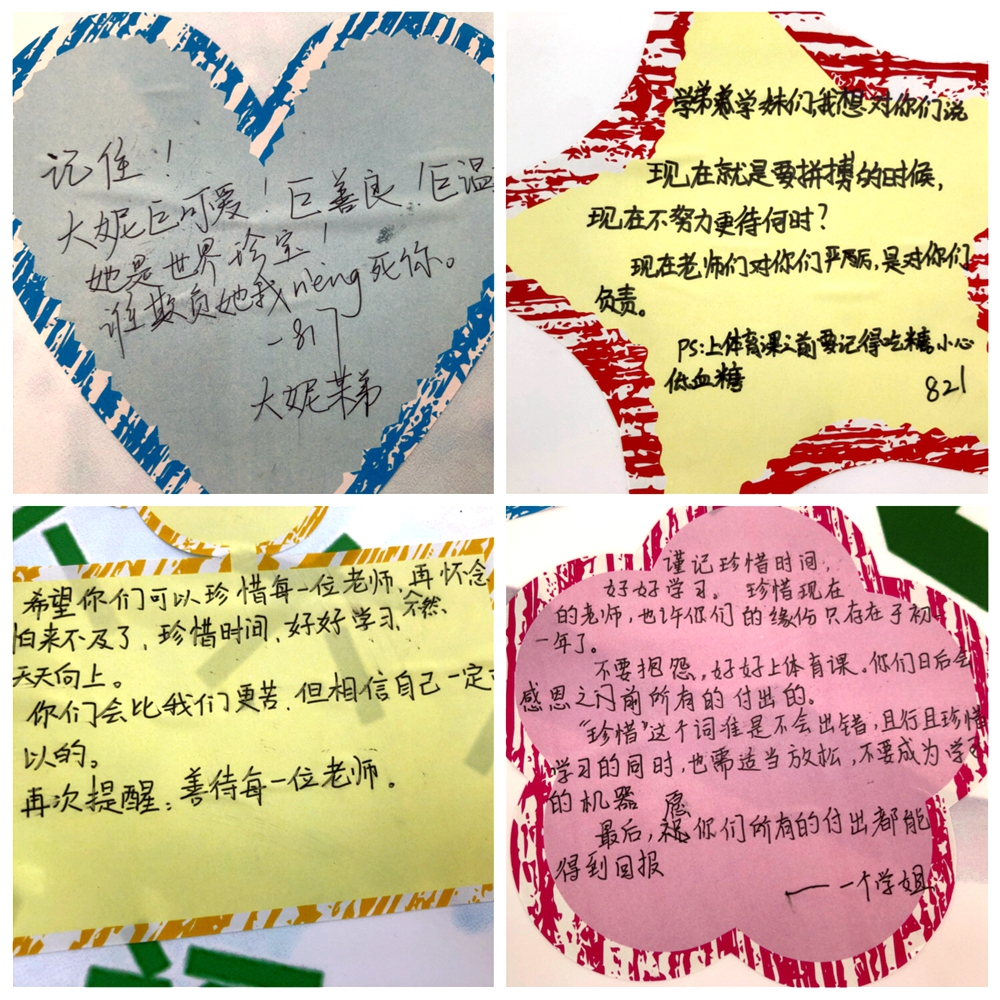 记住！
大妮巨可爱！巨善良！巨温
她是世界珍宝！
谁欺负她我nieng死你。
—817
大妮
学弟学妹们我想对你们说
现在就是要拼搏的时候，
现在不努力更待何时？
现在老师们对你们严厉，是对你们
负责。
PS：上体育课之前要记得吃糖，小心
低血糖
821
希望你们可以珍惜每一位老师，再怀念
怕来不及了，珍惜时间，好好学习，不然、
天天向上。
你们会比我们更苦，但相信自己一定
以的。
再次提醒：善待每一位老师。
谨记珍惜时间，
好好学习。珍惜现在
的老师，也许你们的缘份只存在于初
一年了。
不要抱怨，好好上体育课。你们日后会
感恩之前所有的付出的。
“珍惜”这个词准是不会出错，且行且珍惜
学习的同时，也需适当放松，不要成为学习
的机器
最后，愿你们所有的付出都能
得到回报
——一个学姐